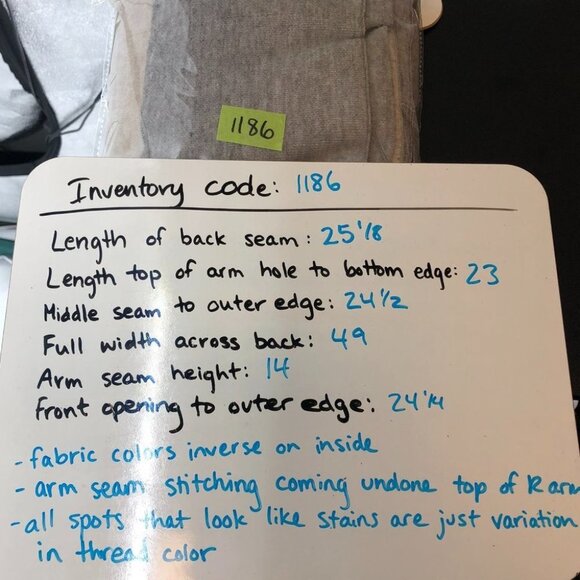 1186
Inventory code: 1186
Length of back seam: 25 1/8
Length top of arm hole to bottom edge: 23
Middle seam to outer edge: 24 1/2
Full width across back: 49
Arm seam height: 14
Front opening to outer edge: 24 1/4
- fabric colors inverse on inside
- arm seam stitching coming undone top of R arm
- all spots that look like stains are just variation
in thread color